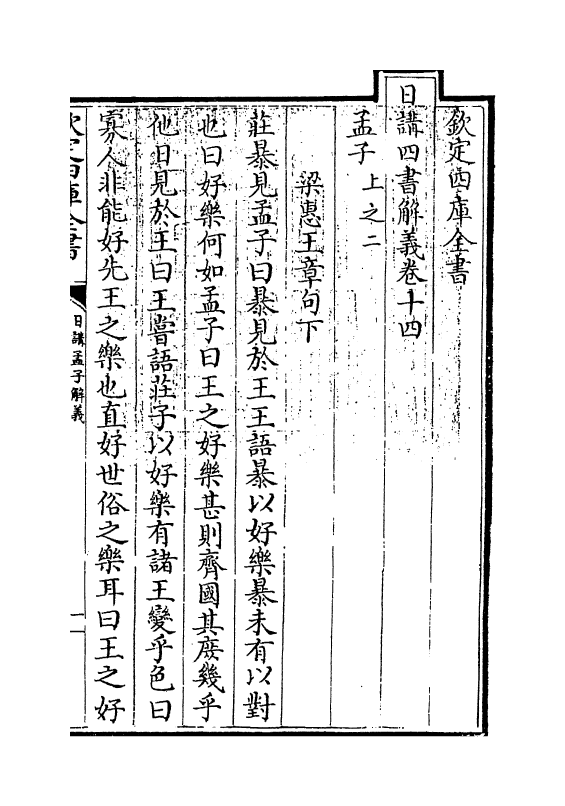 欽定四庫全書
日講四書解義卷十四
孟子上之二
梁惠王章句下
莊暴見孟子曰暴見於王王語暴以好樂暴未有以對
也曰好樂何如孟子曰王之好樂甚則齊國其庶幾乎
他日見於王曰王嘗語莊子以好樂有諸王變乎色曰
寡人非能好先王之樂也直好世俗之樂耳曰王之好
欽定四庫全書
日講孟子解義
一